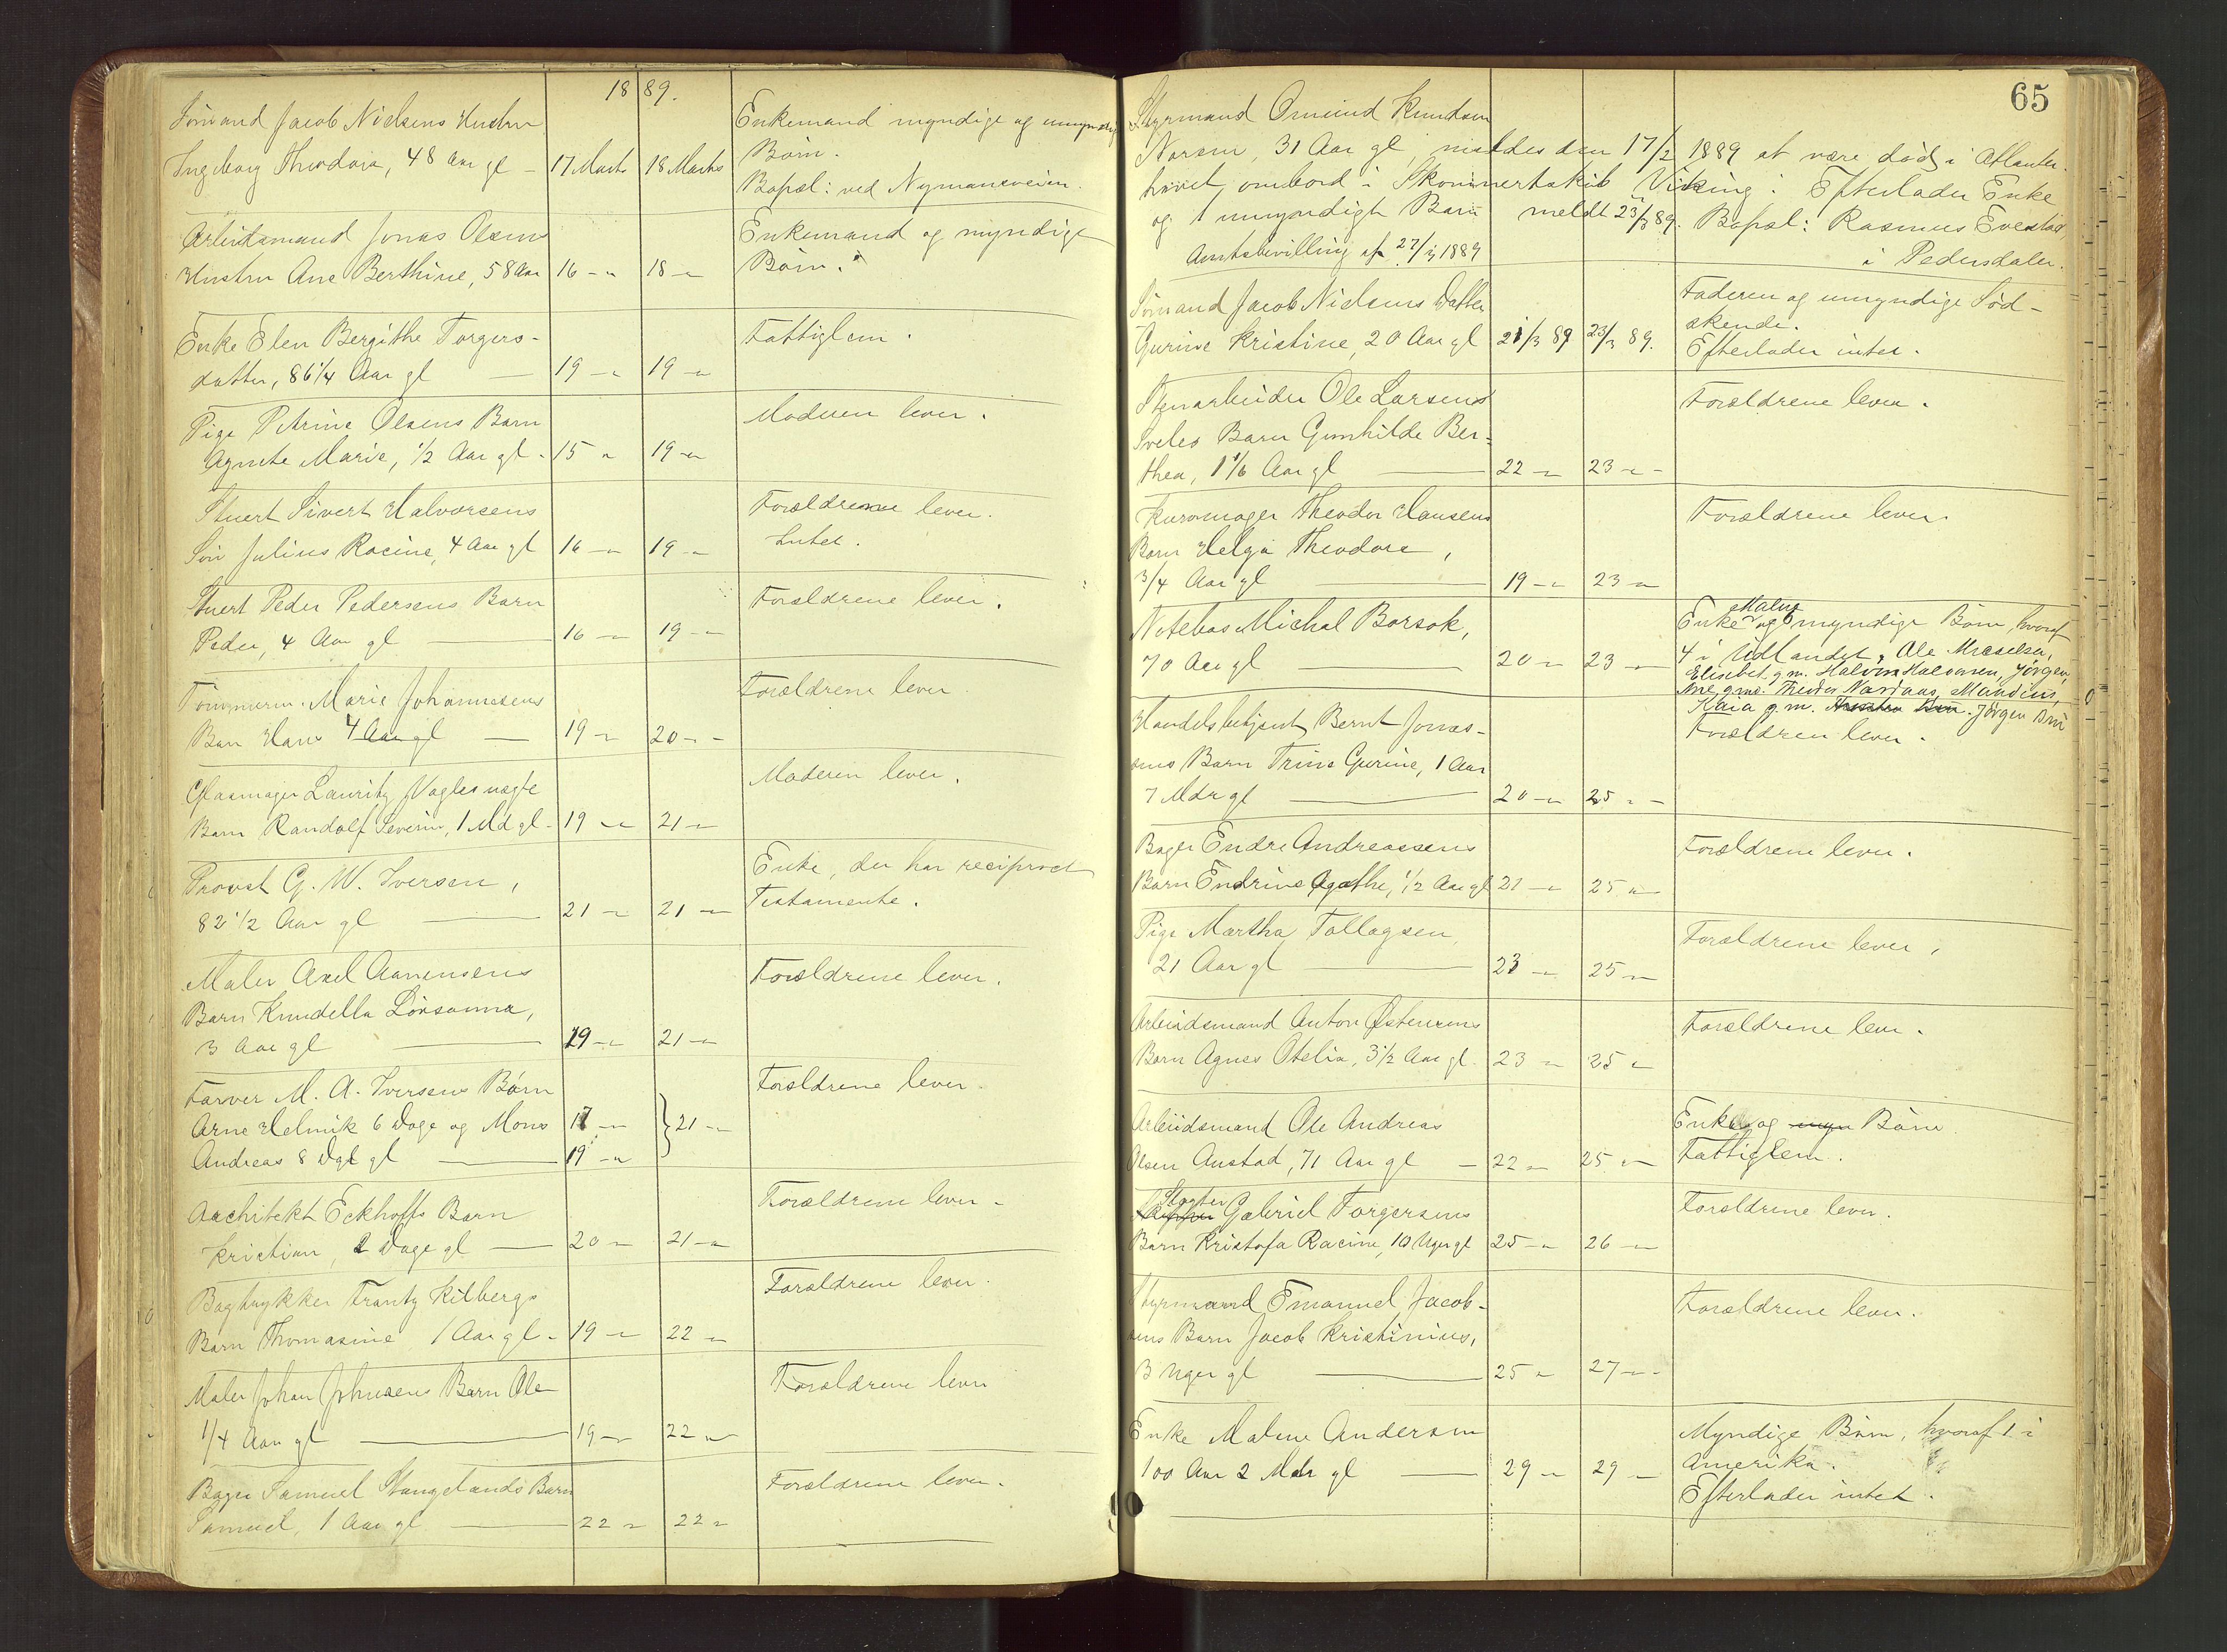 1889.
Sømand Jacob Nielsens Hustru
Ingeborg Theodora, 48 Aar gl - 17 Marts 18 Marts
Enkemand myndige og umyndige
Børn.
Bopæl: ved Nymansveien.
Arbeidsmand Jonas Olsens
Hustru Ane Berthine, 58 Aar 16 - " 18 - "
Enkemand og myndige
Børn.
Enke Elen Bergithe Torgers-
datter, 86 1/4 Aar gl 19 - " 19 - "
Fattiglem.
Pige Petrine Olsens Barn
Agnete Marie, 1/2 Aar gl - 15 " 19 - "
Moderen lever.
Stuert Sivert Halvorsens
Søn Julius Racine, 4 Aar gl 16 - " 19 - "
Forældrene lever.
Intet.
Stuert Peder Pedersens Barn
Peder, 4 Aar gl 16 - " 19 - "
Forældrene lever.
Tømmerm. Marie Johannesens
Barn Hans 4 Aar gl 19 - " 20 - "
Forældrene lever
Glasmager Lauritz Vaglesvagte
Barn Randolf Severin, 1 Md gl - 19 - " 21 - "
Moderen lever.
Provst G. W. Iversen,
82 1/2 Aar gl 21 - " 21 - "
Enke, der har reciproct
Testamente.
Maler Axel Aanensens
Barn Knudella Lovsanna,
3 Aar gl 19 - " 21 - "
Forældrene lever.
Farver M. A. Iversens Børn
Arne Helmik 6 Dage og Mons 17 - "
Andreas 8 Dge gl 19 - " } 21 - "
Forældrene lever.
Architekt Eckhoffs Barn
Kristian, 2 Dage gl 20 - " 21 - "
Forældrene lever -
Bogtrykker Frantz Kilbergs
Barn Thomasine 1 Aar gl - 19 - " 22 - "
Forældrene lever.
Maler Johan Johnsens Barn Ole
1/4 Aar gl 19 - " 22 "
Forældrene lever
Bager Samuel Stangelands Barn
Samuel, 1 Aar gl 22 - " 22 - "
Forældrene lever.
65
Styrmand Omund Knudsen
Norsen, 31 Aar gl, meldes den 17/2 1889 at være død i Atlanter-
havet, ombord i Skonnertskib Viking: Efterlader Enke
og 1 umyndigt Barn meldt 23/3 89. Bopæl: Rasmus Evestad,
i Pedersdalen.
Amtsbevilling af 27/3 1889
Sømand Jacob Nielsens Datter
Gurine Kristine, 20 Aar gl 21/3 89 23/3 89.
Faderen og umyndige Sød-
skende.
Efterlader intet.
Stenarbeider Ole Larsens
Sveles Barn Gunhilde Ber-
thea, 1 1/6 Aar gl 22 - " 23 - " -
Forældrene lever.
Kurvmager Theodor Hansens
Barn Helga Theodore,
3/4 Aar gl 19 - " 23 - "
Forældrene lever.
Notebas Michal Borsok,
70 Aar gl 20 - " 23 - "
Malene
Enke og myndige Børn, hvoraf
4 i Udlandet, Ole Micaelsen,
Elisabet g. m. Halvor Halvorsen, Jørgen,
Ane, gme. Theodor Nordaas, Mandius,
Kaia g. m. Jørgen Bru
Handelsbetjent Bernt Jonas-
sens Barn Trine Gurine, 1 Aar
7 Mdr gl 20 - " 25 - " -
Forældren lever.
Bager Endre Andreassens
Barn Endrine Agathe, 1/2 Aar gl 21 - " 25 " -
Forældrene lever.
Pige Martha Tollagsen
21 Aar gl 23 - " 25 - "
Forældrene lever,
Arbeidsmand Anton Østensens
Barn Agnes Otelia, 3 1/2 Aar gl. 23 - " 25 "
Forældrene lever.
Arbeidsmand Ole Andreas
Olsen Austad, 71 Aar gl - 22 - " 25 " -
Enke og umyn Børn
Fattiglem.
Slagter
Gabriel Torgersens
Barn Kristofa Racine, 10 Uger gl 25 - " 26 - "
Forældrene lever.
Styrmand Emanuel Jacob-
sens Barn Jacob Kristinius,
3 Uger gl 25 " 27 - " -
Forældrene lever.
Enke Malene Andersen
100 Aar 2 Mdr gl 29 - " 29 - "
Myndige Børn, hvoraf 1 i
Amerika.
Efterlader intet.